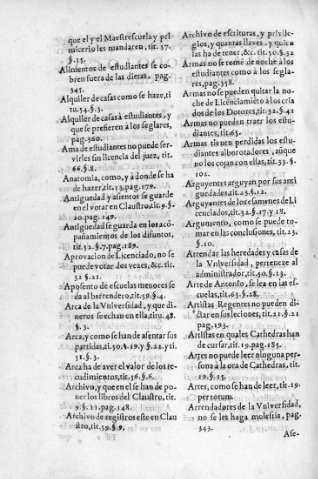 que el y el Maestrescuela y pri
micerio les mandaren, tit. 37.
§. 15.
Alimentos de estudiantes se co-
bren fuera de las dietas, pag.
345.
Alquiler de casas como se haze, ti
tu. 54. §. 3.
Alquiler de casas à estudiantes, y
que se prefieren à los seglares,
pag. 360.
Ama de estudiantes no puede ser-
virles sin licencia del juez, tit.
66. §. 8.
Anatomia, como, y à donde se ha
de hazer, tit. 13. pag. 170.
Antiguedad y asientos se guarde
en el votar en Claustro, tit. 9. §.
20. pag. 149.
Antiguedad se guarda en los acõ-
pañamientos de los difuntos,
tit. 32. §. 7. pag. 189.
Aprovacion de Licenciado, no se
puede votar dos vezes, &c. tit.
32 §. 21.
Aposento de escuelas menores se
da al barrendero, tit. 59. §. 4.
Arca de la Vniversidad, y que di-
neros se echan en ella, titu. 48.
§. 3.
Arca, y como se han de asentar sus
partidas, ti. 50. §. 19. y §. 22. y ti.
51. §. 3.
Arca ha de aver el valor de los re-
zedimientos, tit. 56. §. 6.
Archivo, y que en el se han de po-
ner los libros del Claustro, tit.
9. §. 22. pag. 148.
Archivo de registros este en Clau
stro, tit. 59. §. 9.
Archivo de escrituras, y privile-
gios, y quantas llaves, y quien
las ha de tener, &c. tit. 57. §. 1.
Armas no se tome de noche à los
estudiantes como à los segla-
res, pag. 358.
Armas no se pueden quitar la no-
che de Licenciamiẽto à los cria
dos de los Dotores, tit. 32. §. 42
Armas no pueden traer los estu-
diantes, tit. 65.
Armas tienen perdidas los estu-
diantes alborotadores, aũque
no los cojan con ellas, tit. 33. §.
101.
Arguyentes arguyan por sus anti
guedades, tit. 23. §. 12.
Arguyentes de los examẽnes de Li
cenciados, tit. 32. §. 17. y 18.
Argumento, como se puede to-
mar en las conclusiones, tit. 23.
§. 10.
Arrendar las heredades y casas de
la Vniversidad, pertenece al
administrador, tit. 50. §. 23.
Arte de Antonio, se lea en las es-
cuelas, tit. 63. §. 28.
Artistas Regentes no pueden di-
ctar en sus leciones, tit. 21. §. 21
pag. 193.
Artistas en quales Cathedras han
de cursar, tit. 19. pag. 183.
Artes no puede leer ninguna per-
sona à la ora de Cathedras, tit.
19. §. 19.
Artes, como se han de leer, tit. 19.
per totum.
Arrendadores de la Vniversidad,
no se les haga molestia, pag.
343.
Ase-